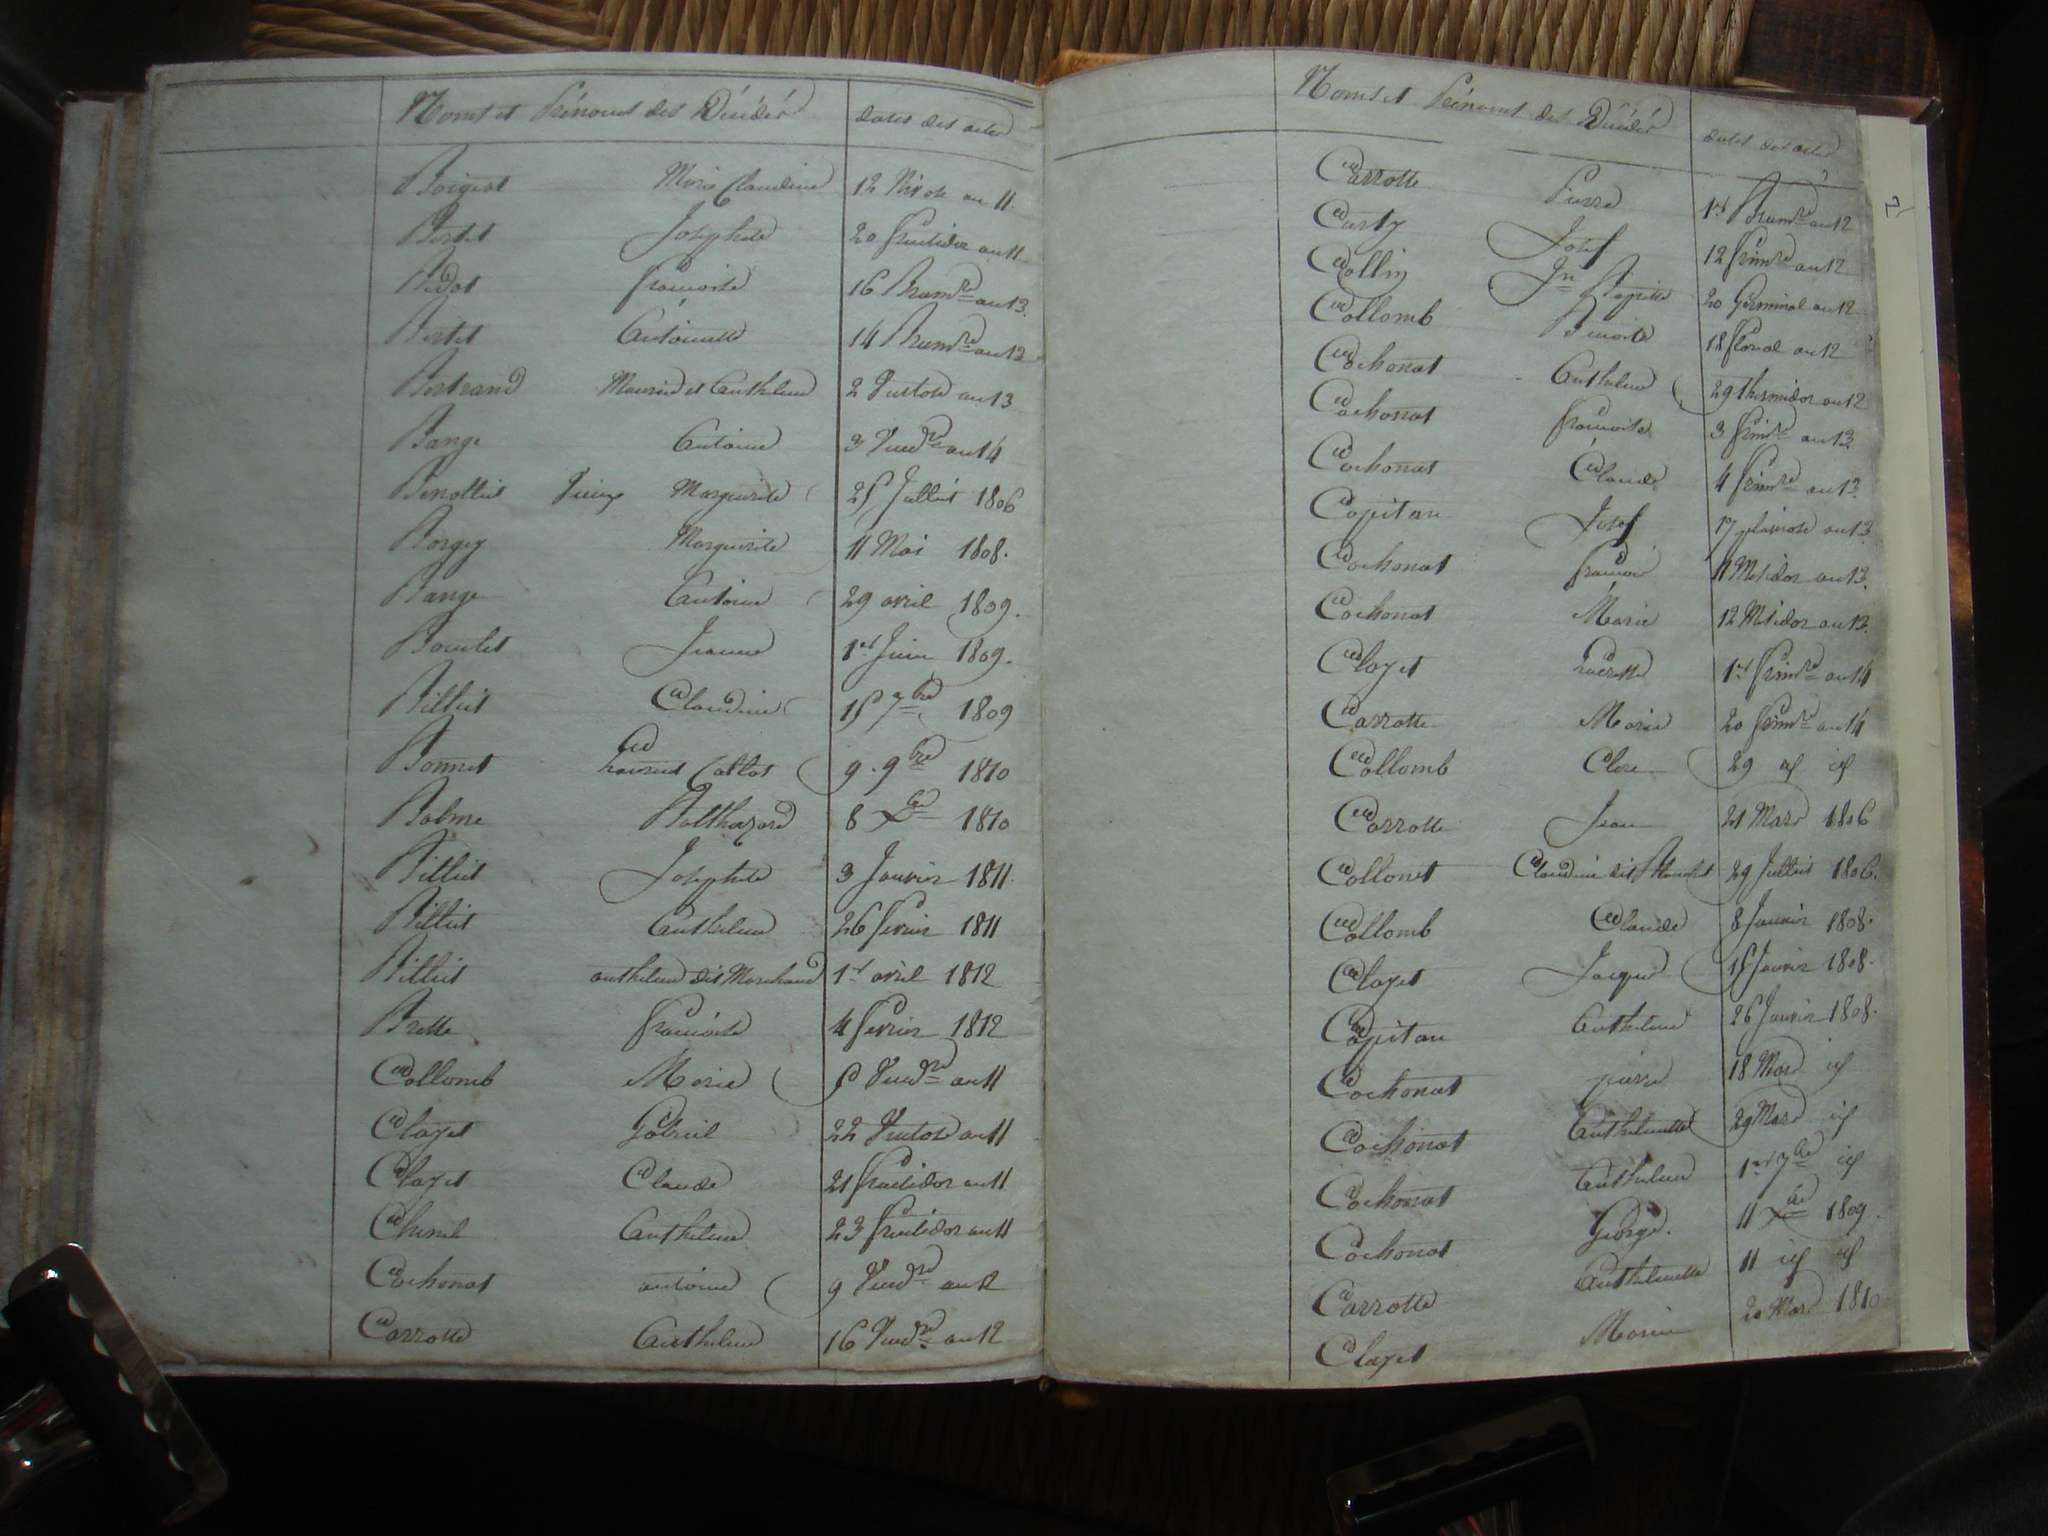 Noms et Prénoms des Décédés dates des actes
Boigest Marie Claudine 12 Nivose an 11
Bertet Josephte 20 fructidor an 11
Bidot francoise 16 Brum.re an 13.
Bertet Antoinette 14 Brum.re an 12
Bertrand Maurice et Anthelme 2 Ventose an 13
Bange Antoine 3 Vend.re an 14
Benottiet Marguerite 25 Juillet 1806
Borgey Marguerite 11 Mai 1808.
Bange Antoine 29 avril 1809.
Boulet Jeanne 1er Juin 1809.
Billiet Claudine 15 7bre 1809
Bonnet Laurent Callot 9. 9bre 1810
Balme Balthazard 8 Xbre 1810
Billiet Josephte 3 Janvier 1811.
Billiet Anthelme 26 fevrier 1811
Billiet anthelme dit Marchand 1er avril 1812
Brette francoise 4 fevrier 1812
Collomb Marie 5 Vend.re an 11
Clayet Gabriel 22 Ventose an 11
Clayet Claude 21 fructidor an 11
Chenel Anthelme 23 fructidor an 11
Cochonat antoine 9 Vend.re an 12
Carrotte Anthelme 16 Vend.re an 12
Noms et Prénoms des Décédés dates des actes
Carrotte Pierre 1er Brum.re an 12
Josef 12 frim.re an 12
Collin Jn Baptiste 20 Germinal an 12
Collomb Benoite 18 floreal an 12
Cochonat Anthelme 29 thermidor an 12
Cochonat francoise 3 frim.re an 13.
Cochonat Claude 4 frim.re an 13.
Capitan Josef 17 pluviose an 13.
Cochonat francois 11 Mesidor an 13.
Cochonat Marie 12 Mesidor an 13.
Clayet 1er frim.re an 14
Carrotte Marie 20 frim.re an 14
Collomb Clere 29 id id
Carrotte Jean 21 Mars 1806
Collonet Claudine dit 29 Juillet 1806.
Collomb Claude 8 Janvier 1808.
Clayet Jacques 15 Janvier 1808.
Capitan Anthelme 26 Janvier 1808.
Cochonat pierre 18 Mars id
Cochonat Anthelmette 29 Mars id
Cochonat Anthelme 1er 7bre id
Cochonat George. 11 Xbre 1809.
Carrotte Anthelmette 11 id id
Clayet Marie 20 Mars 1810